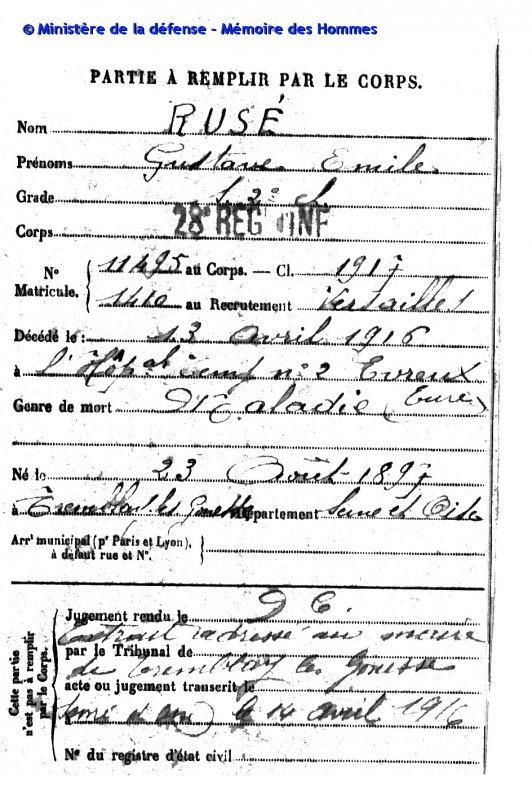 © Ministère de la défense - Mémoire des Hommes
PARTIE À REMPLIR PAR LE CORPS.
Nom RUSÉ
Prénoms Gustave Emile
Grade S. 2e Cl.
Corps 28e REG. D'INF
N° Matricule. 11495 au Corps. — Cl. 1917
1410 au Recrutement Versailles
Décédé le : 13 avril 1916
à l'Hôpal temp n° 2 Evreux
Genre de mort Maladie (Eure)
Né le 23 Août 1897
à Tremblay les Gonesse Département Seine et Oise
Arrt municipal (pr Paris et Lyon),
à défaut rue et N°.
Cette partie n'est pas à remplir par le Corps.
Jugement rendu le D C.
Extrait adressé au maire
par le Tribunal de
de Tremblay les Gonesse
acte ou jugement transcrit le
le 14 avril 1916
à
N° du registre d'état civil